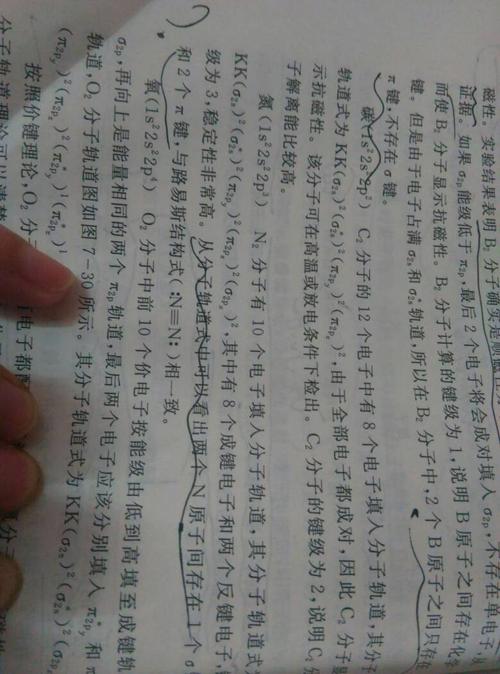 磁性。实验结果表明B₂分子确实是顺磁
证据。如果σ₂ₚ能级低于π₂ₚ,最后2个电子将会成对填入σ₂ₚ,不存在单电子,从
而使B₂分子显示抗磁性。B₂分子计算的键级为1,说明B原子之间存在化学
键。但是由于电子占满σ₂ₛ和σ₂ₛ*轨道,所以在B₂分子中,2个B原子之间只存在
π键,不存在σ键。
碳(1s²2s²2p²) C₂分子的12个电子中有8个电子填入分子轨道,其分子
轨道式为KK(σ₂ₛ)²(σ₂ₛ*)²(π₂ₚᵧ)²(π₂ₚ_z)²,由于全部电子都成对,因此C₂分子显
示抗磁性。该分子可在高温或放电条件下检出。C₂分子的键级为2,说明C₂分
子解离能比较高。
氮(1s²2s²2p³) N₂分子有10个电子填入分子轨道,其分子轨道式为
KK(σ₂ₛ)²(σ₂ₛ*)²(π₂ₚᵧ)²(π₂ₚ_z)²(σ₂ₚₓ)²,其中有8个成键电子和两个反键电子,键
级为3,稳定性非常高。从分子轨道式中可以看出两个N原子间存在1个σ
和2个π键,与路易斯结构式(:N≡N:)相一致。
氧(1s²2s²2p⁴) O₂分子中前10个价电子按能级由低到高填至成键轨
σ₂ₚ,再向上是能量相同的两个π₂ₚ*轨道,最后两个电子应该分别填入π₂ₚᵧ*和π
轨道,O₂分子轨道图如图7-30所示。其分子轨道式为KK(σ₂ₛ)²(σ₂ₛ*)²(σ₂ₚ
(π₂ₚᵧ)²(π₂ₚ_z)²(π₂ₚᵧ*)¹(π₂ₚ_z*)¹
按照价键理论,O₂分子 电子都配
分子轨道理论可以清楚